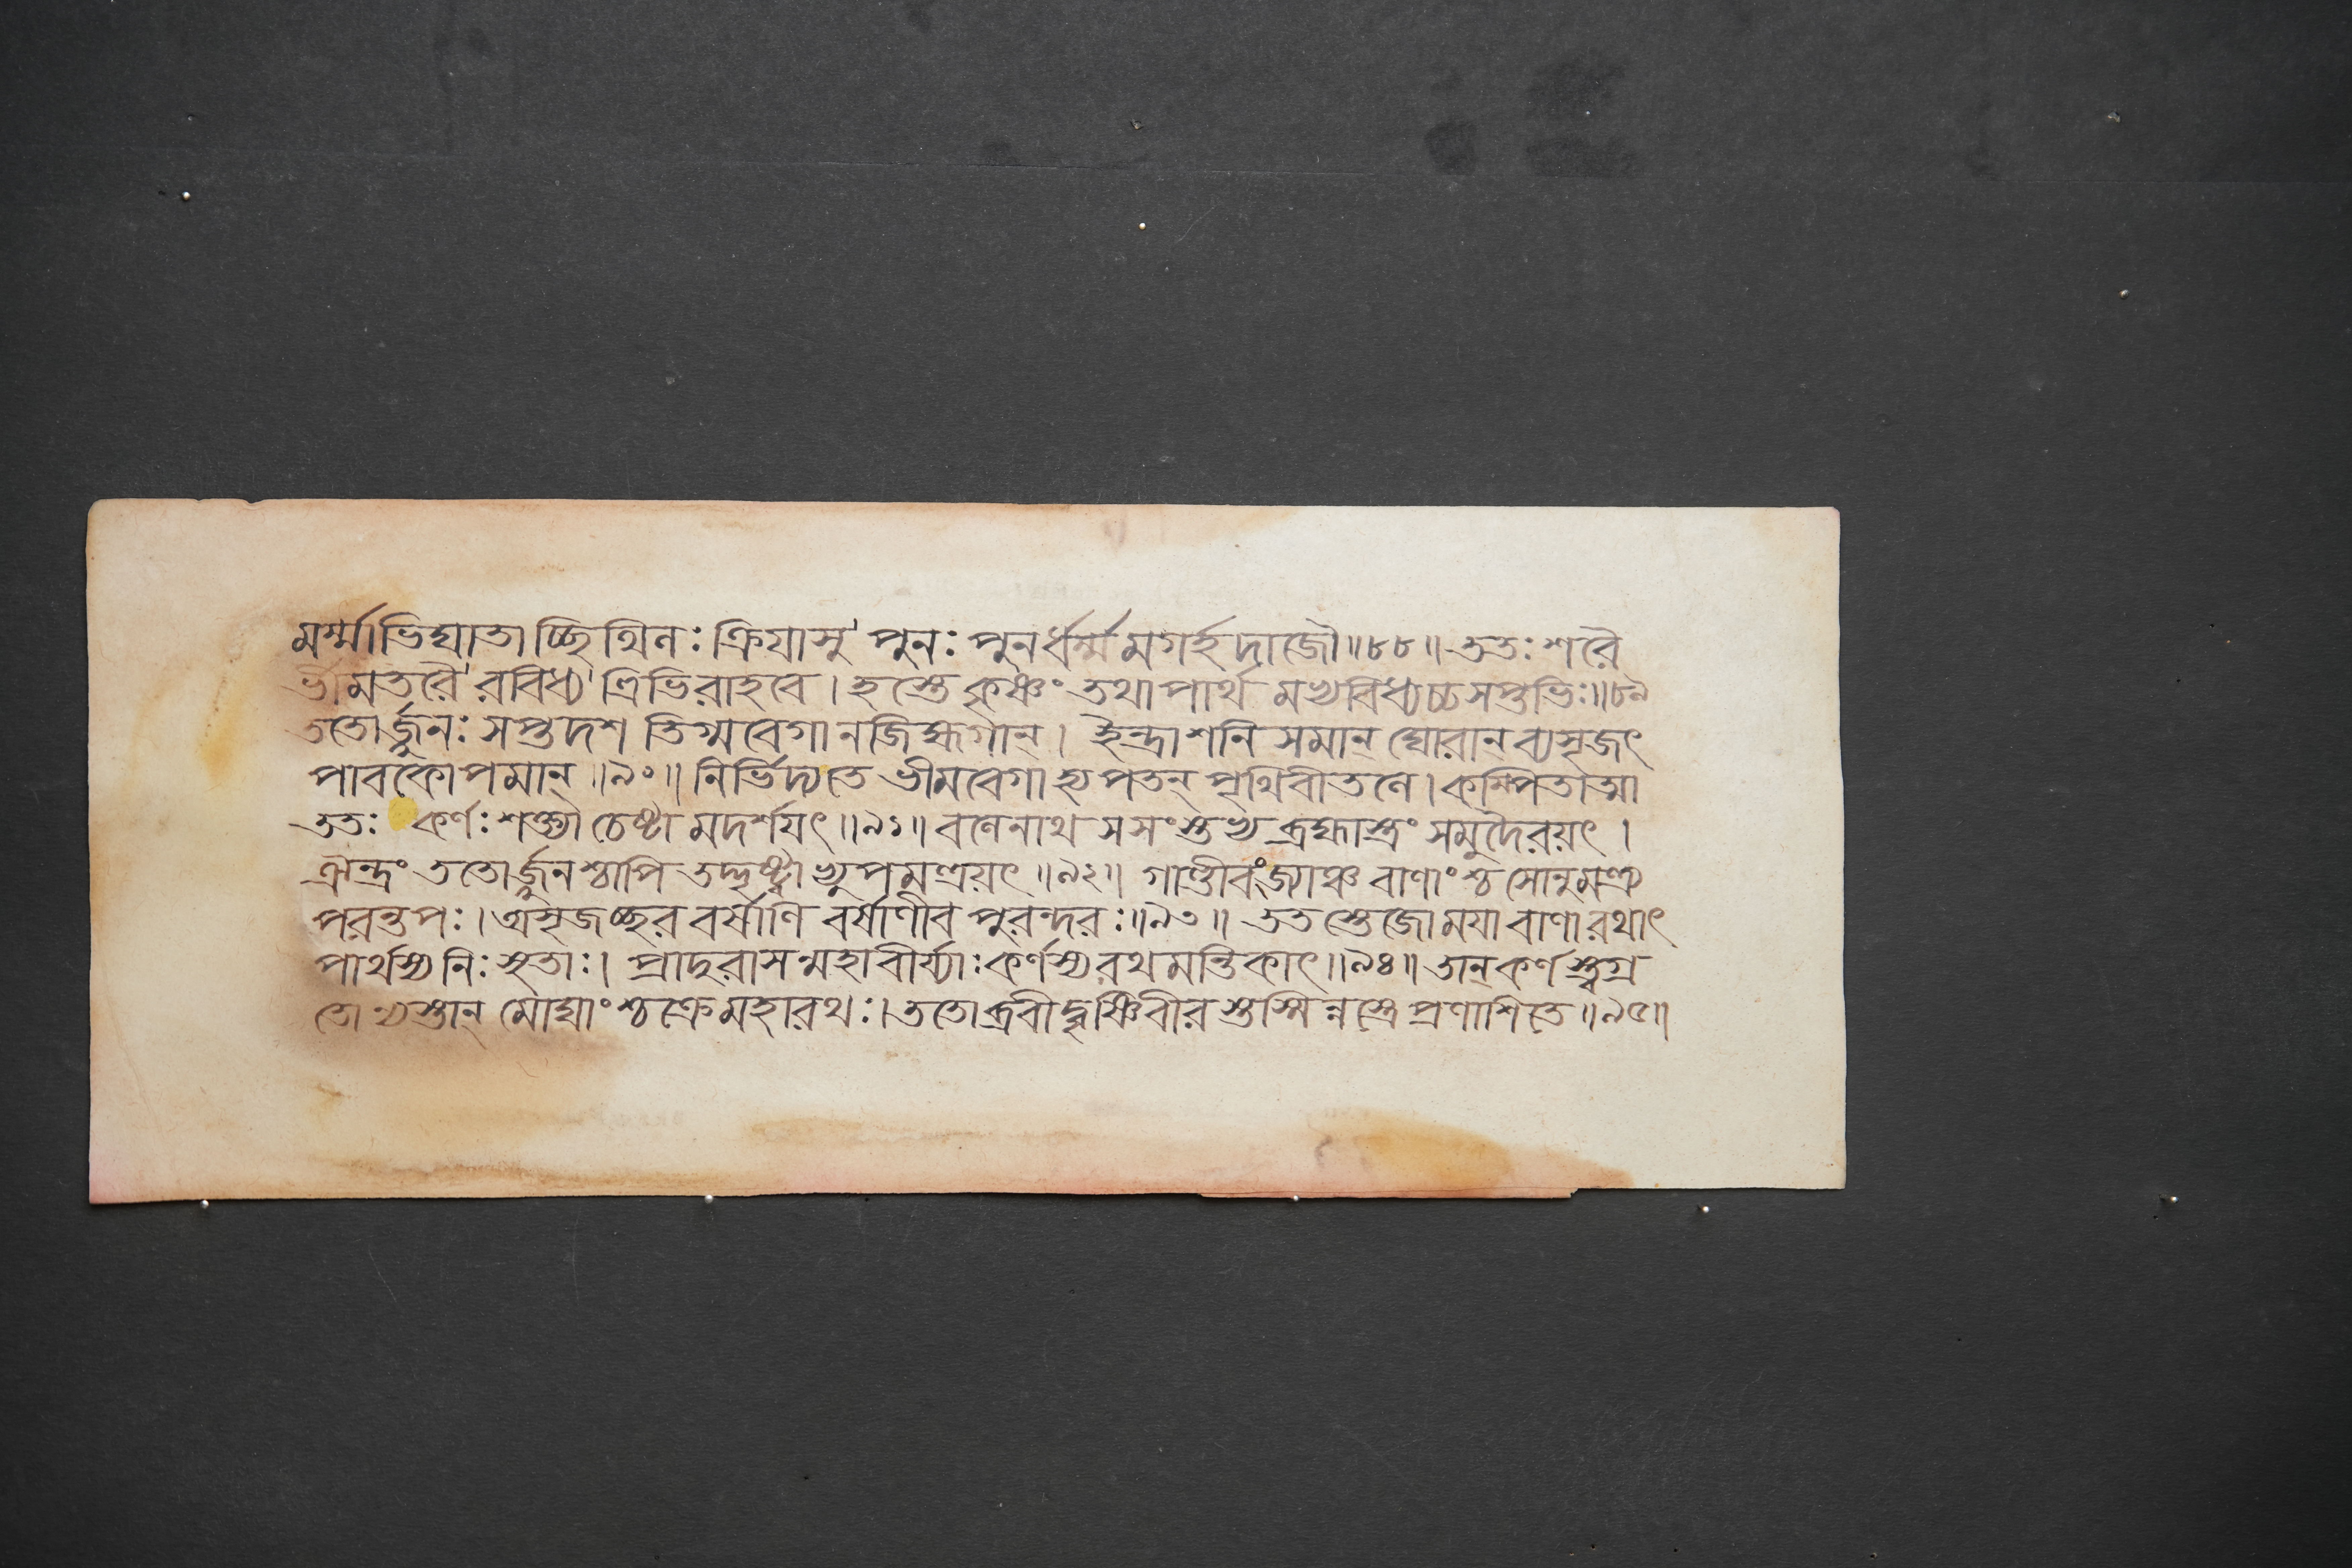 মর্ম্মাভিঘাতাচ্ছিথিনঃ ক্রিয়াসু পুনঃ পুনর্ধর্ম্মমগর্হদাজৌ॥৮৮॥ ততঃ শরৈ
র্ভীমতরৈ রবিধ্য ত্রিভিরাহবে। হস্তে কৃষ্ণং তথা পার্থ মভ্যবিধ্যচ্চ সপ্তভিঃ॥৮৯
ততোর্জ্জুনঃ সপ্তদশ তিগ্মবেগানজিহ্মগান্। ইন্দ্রাশনি সমান্ ঘোরান ব্যসৃজৎ
পাবকোপমান্॥৯০॥ নির্ভিদ্যতে ভীমবেগা হ্যপতন্ পৃথিবীতলে। কম্পিতাত্মা
ততঃ কর্ণঃ শক্ত্যা চেষ্টা মদর্শয়ৎ॥৯১॥ বলেনাথ সসংস্তভ্য ব্রহ্মাস্ত্রং সমুদৈরয়ৎ।
ঐন্দ্রং ততোর্জ্জুনশ্চাপি তদ্দৃষ্ট্বা ভ্যুপমন্ত্রয়ৎ॥৯২॥ গাণ্ডীবং জ্যাঞ্চ বাণাংশ্চ সোনুমন্ত্র্য
পরন্তপঃ। অসৃজচ্ছর বর্ষাণি বর্ষাণীব পুরন্দরঃ॥৯৩॥ ততস্তেজোময়া বাণা রথাৎ
পার্থস্য নিঃসৃতাঃ। প্রাদুরাসন্মহাবীর্য্যাঃ কর্ণস্য রথমন্তিকাৎ॥৯৪॥ তান্ কর্ণস্ত্বগ্র
তোভ্যস্তান্ মোঘাংশ্চক্রে মহারথঃ। ততোব্রবীদ্বৃষ্ণিবীরস্তস্মিন্নস্ত্রে প্রণাশিতে॥৯৫॥